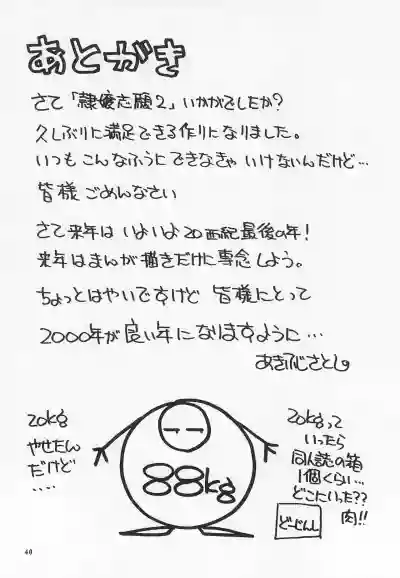 あとがき
さて「隷嬢志願2」いかがでしたか?
久しぶりに満足できる作りになりました。
いつもこんなふうにできなきゃいけないんだけど…
皆様ごめんなさい
さて来年はいよいよ20西紀最後の年!
来年はまんが描きだけに専念しよう。
ちょっとはやいですけど皆様にとって
2000年が良い年になりますように…
あきふじさとし。
20kg
やせたん
だけど
‥‥
88kg
20kgって
いったら
同人誌の箱
1個くらい…
どこいった??
肉!!
どーじんし
40